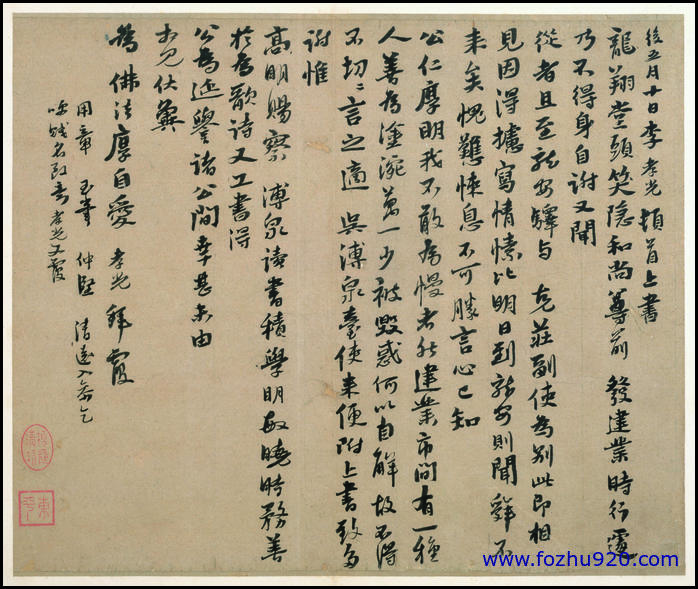 後五月十日李孝光頓首上書
龍翔堂頭笑隱和尚尊前 發建業時行遽
乃不得身自謝又聞
從者且至龍安驛與 克莊副使為別此即相
見因得攄寫情愫比明日到龍安則聞舜不
来矣愧難悚息不可勝言心已知
公仁厚明我不敢為慢者然建業市間有一種
人善為塗涴萬一少被毀惑何以自解故不得
不切々言之適 吳溥泉臺使来便附上書致多
謝惟
高明賜察 溥泉讀書積學明敏曉時務善
於為歌詩又工書得
公為延譽諸公間幸甚未由
占見伏冀
為佛法厚自愛 孝光拜覆
用章 玉章 仲堅 清遠入
名 孝光又覆
www.fozhu920.com